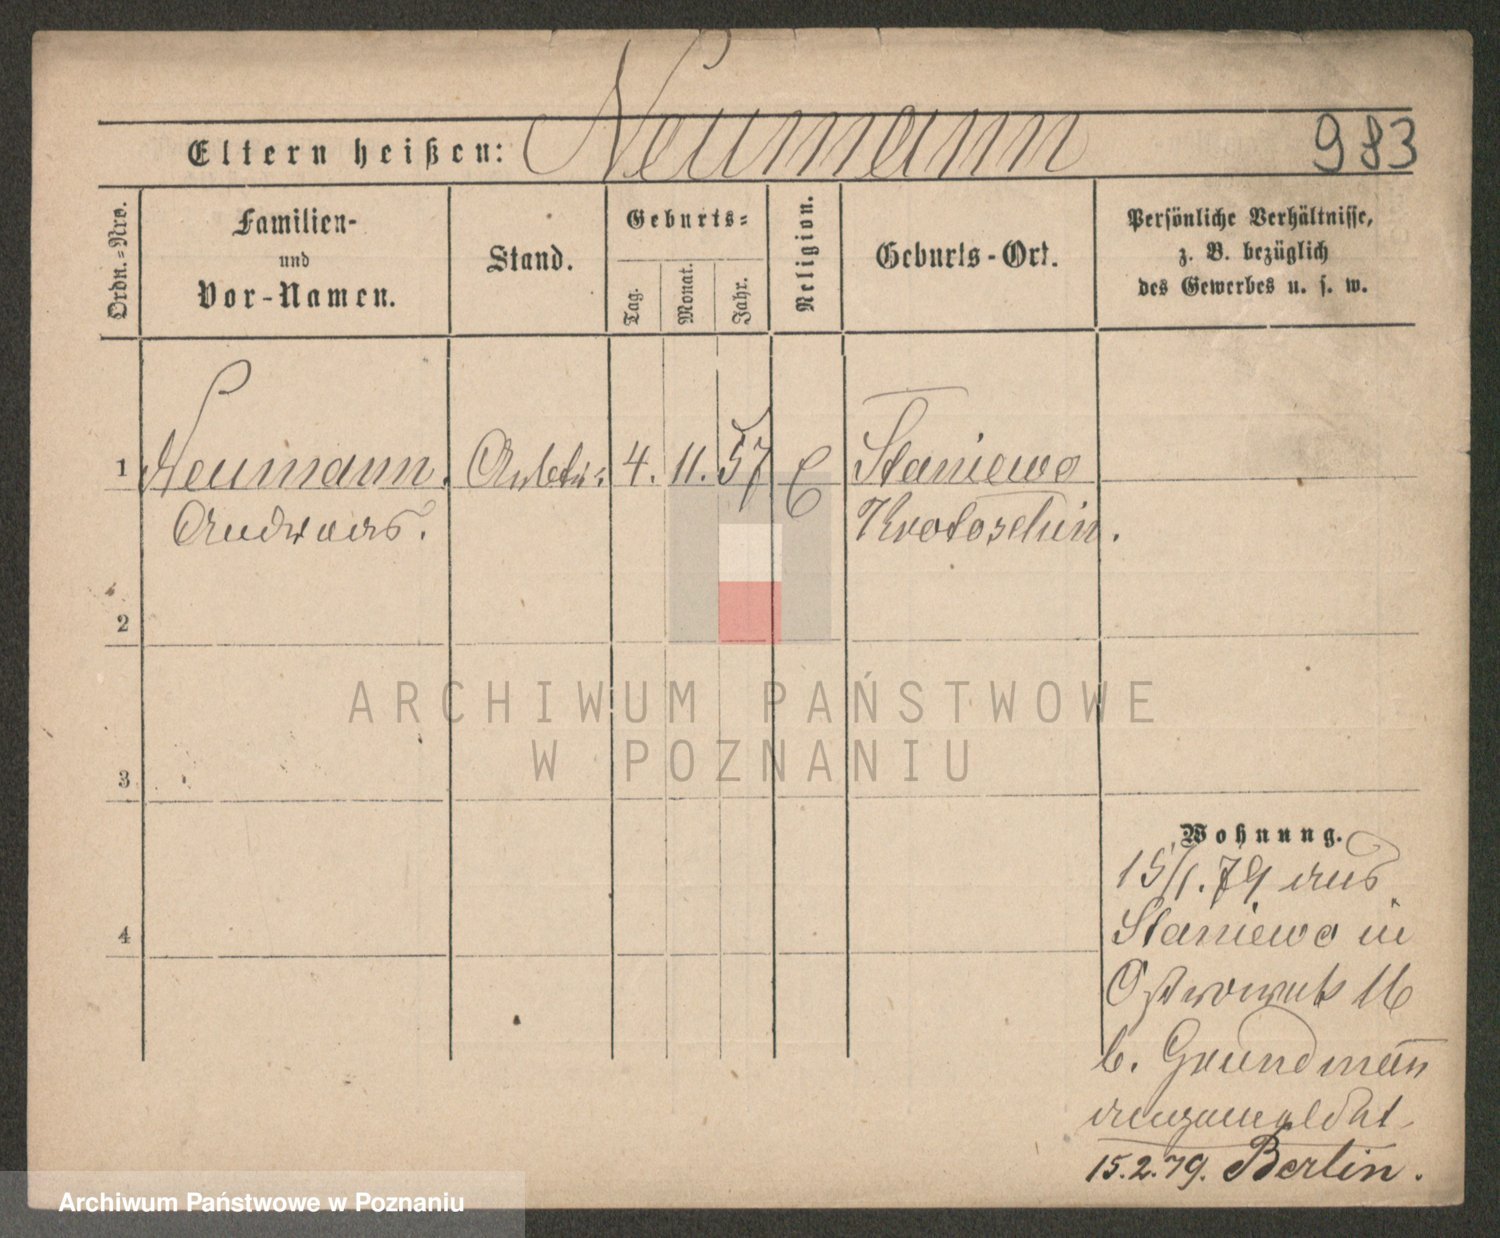 Eltern heißen: Neumann 983
Ordn.=Nro.
Familien-
und
Vor-Namen.
Stand.
Geburts=
Tag.
Monat.
Jahr.
Religion.
Geburts-Ort.
Persönliche Verhältnisse,
z. B. bezüglich
des Gewerbes u. s. w.
1 Neumann. Arbtr: 4. 11. 57 E Staniewo
Andreas. Krotoschin.
2
ARCHIWUM PAŃSTWOWE
W POZNANIU
3
Wohnung.
15/1. 79 aus
4 Staniewo in
Ostrowek 16
b. Grundmann
angemeldet
15.2.79. Berlin.
Archiwum Państwowe w Poznaniu